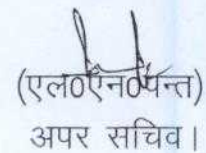 (एल0एन0पन्त)
अपर सचिव।